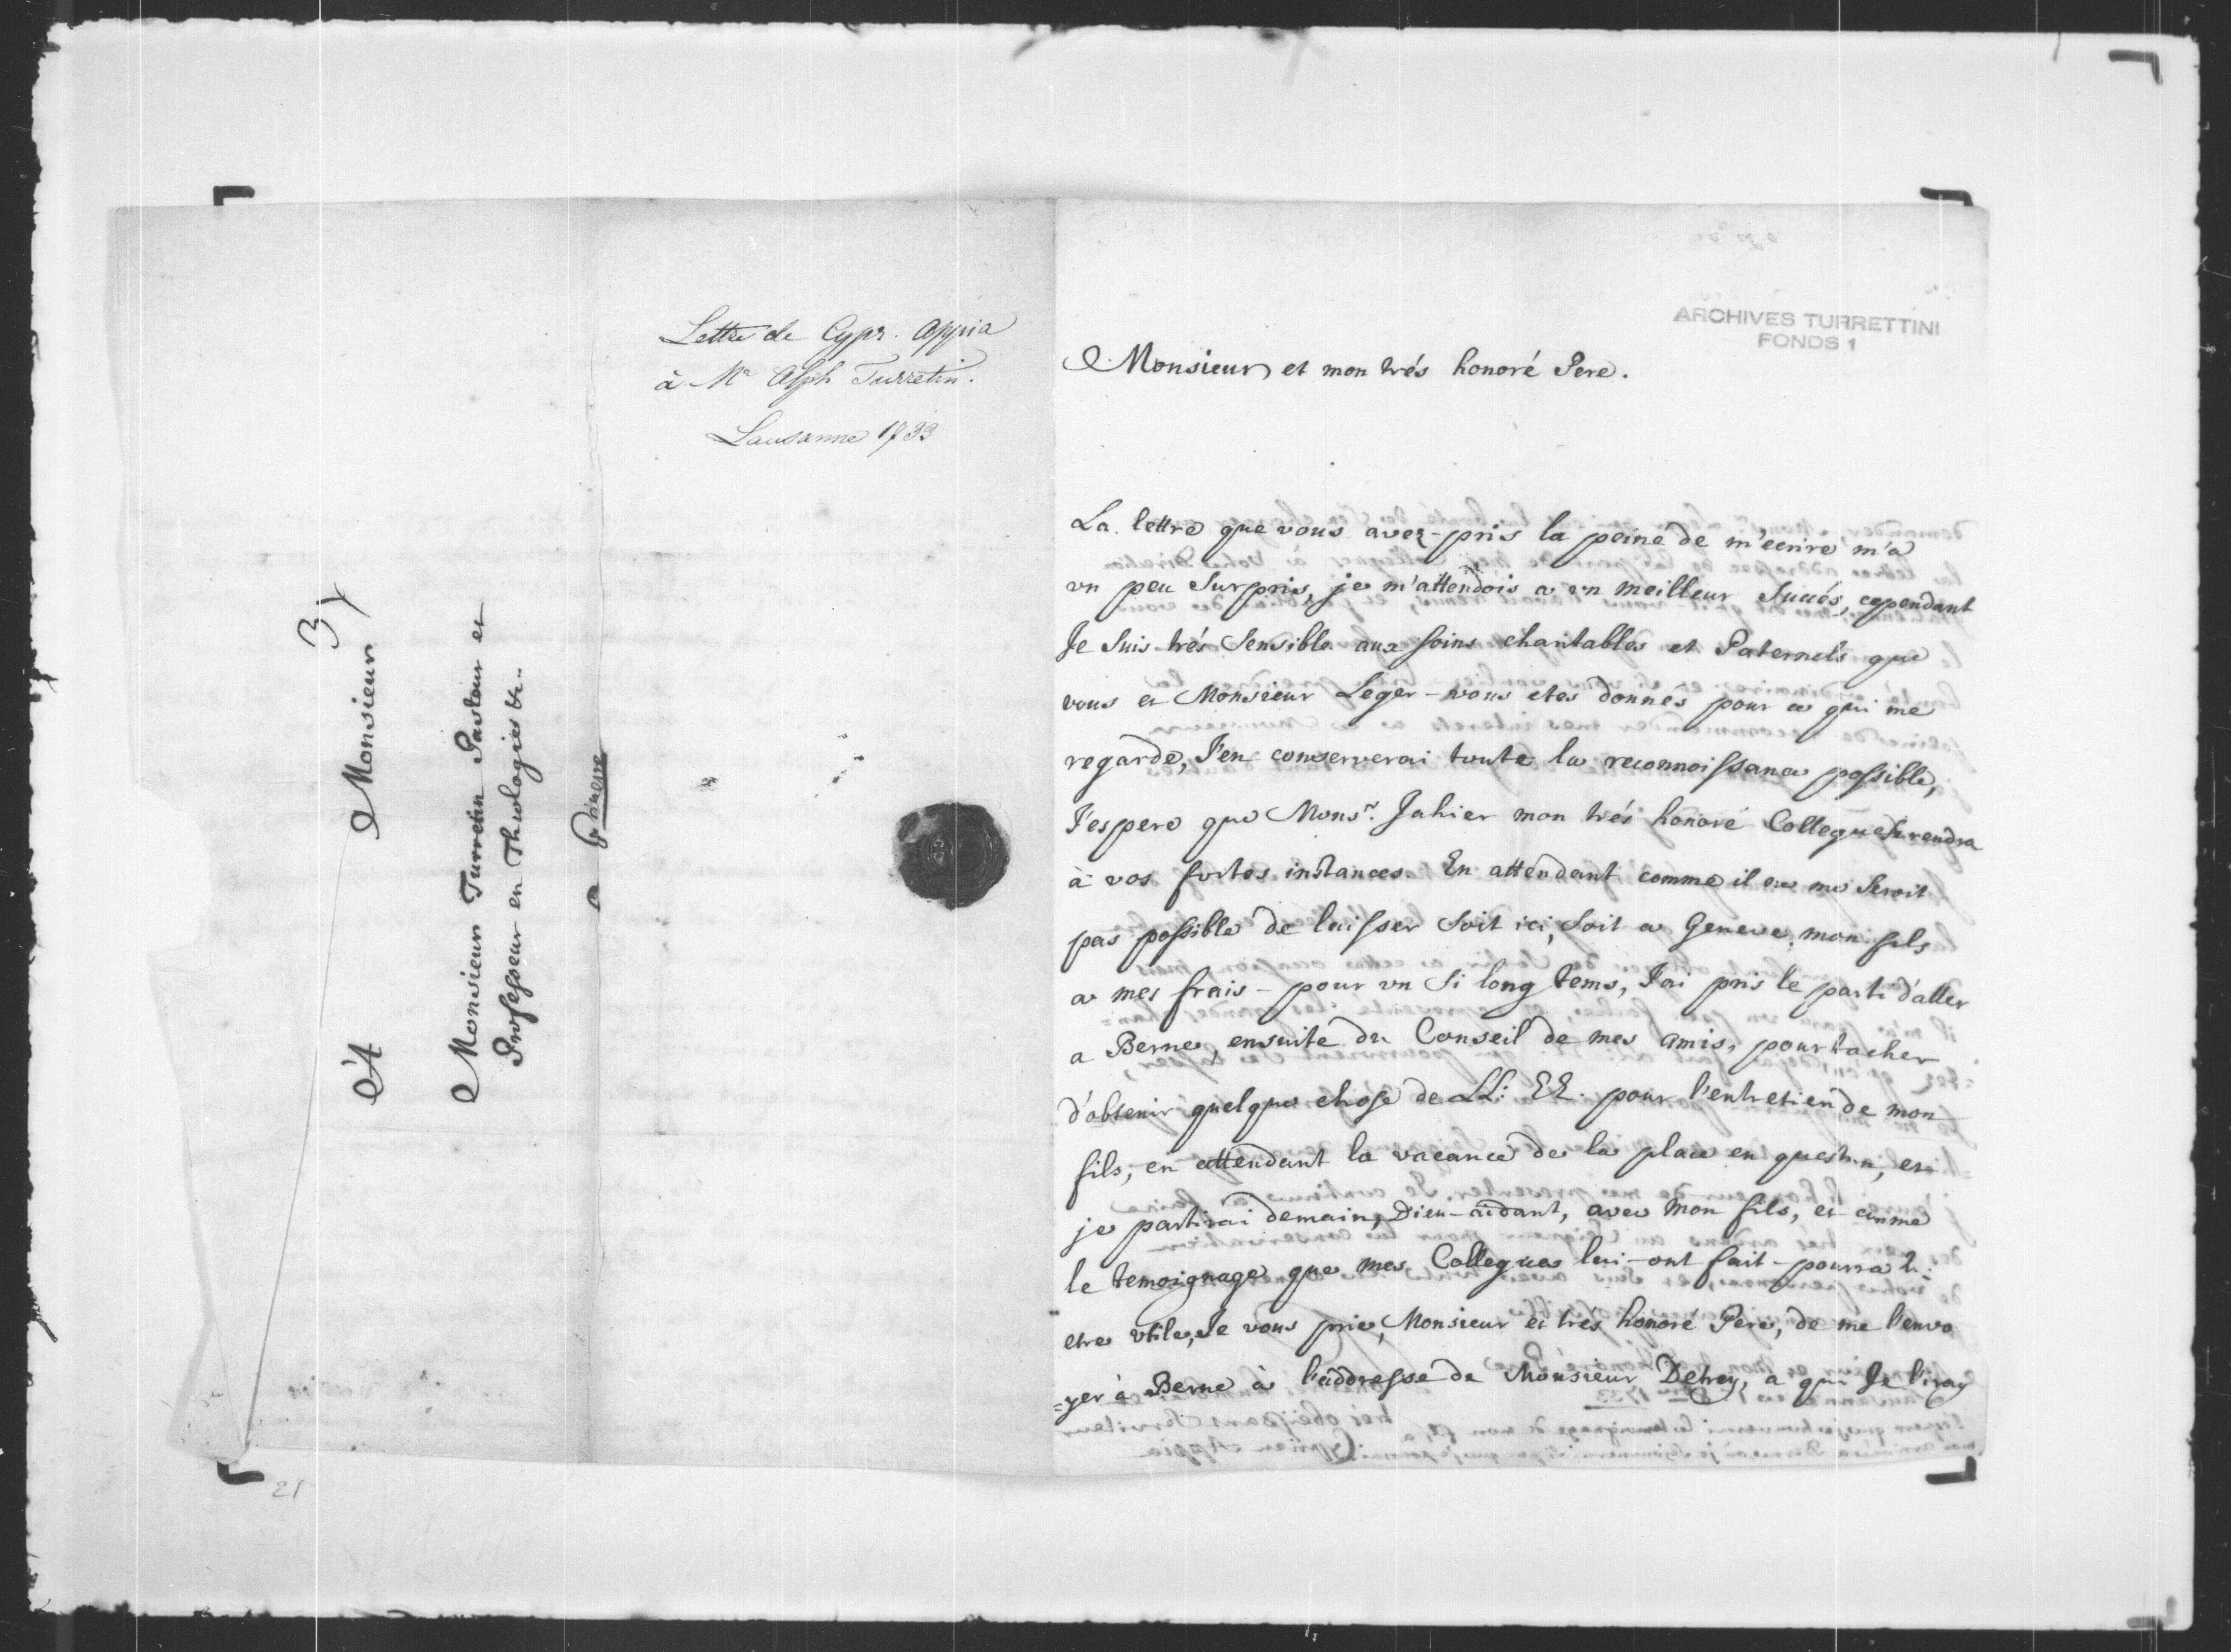 A Monsieur
Monsieur Turretin Pasteur et
Professeur en Theologie &c.
a Géneve
Lettre de Cypr. Appia
à Mr Alph Turretin.
Lausanne 1733
ARCHIVES TURRETTINI
FONDS 1
Monsieur et mon trés honoré Pere.
La lettre que vous avez pris la peine de m'ecrire m'a
vn peu Surpris, je m'attendois a vn meilleur Succés, cependant
Je Suis trés Sensible aux soins charitables et Paternels que
vous et Monsieur Leger vous etes donnés pour ce qui me
regarde, J'en conserverai toute la reconnoissance possible,
J'espere que Monsr. Jahier mon trés honoré Collegue Se rendra
à vos fortes instances. En attendant comme il ne me Seroit
pas possible de laisser Soit ici, Soit a Geneve, mon fils
a mes frais pour vn Si long tems, J'ai pris le parti d'aller
a Berne, ensuite du Conseil de mes amis, pour tacher
d'obtenir quelque chose de LL: EE. pour l'entretien de mon
fils, en attendant la vacance de la place en question, et
je partirai demain, Dieu-aidant, avec mon fils, et comme
le temoignage que mes Collegues lui-ont fait pourra lui
etre vtile, Je vous prie, Monsieur et trés honoré Pere, de me l'envo
=yer à Berne à l'addresse de Monsieur Detrey, a qui Je l'iray
21